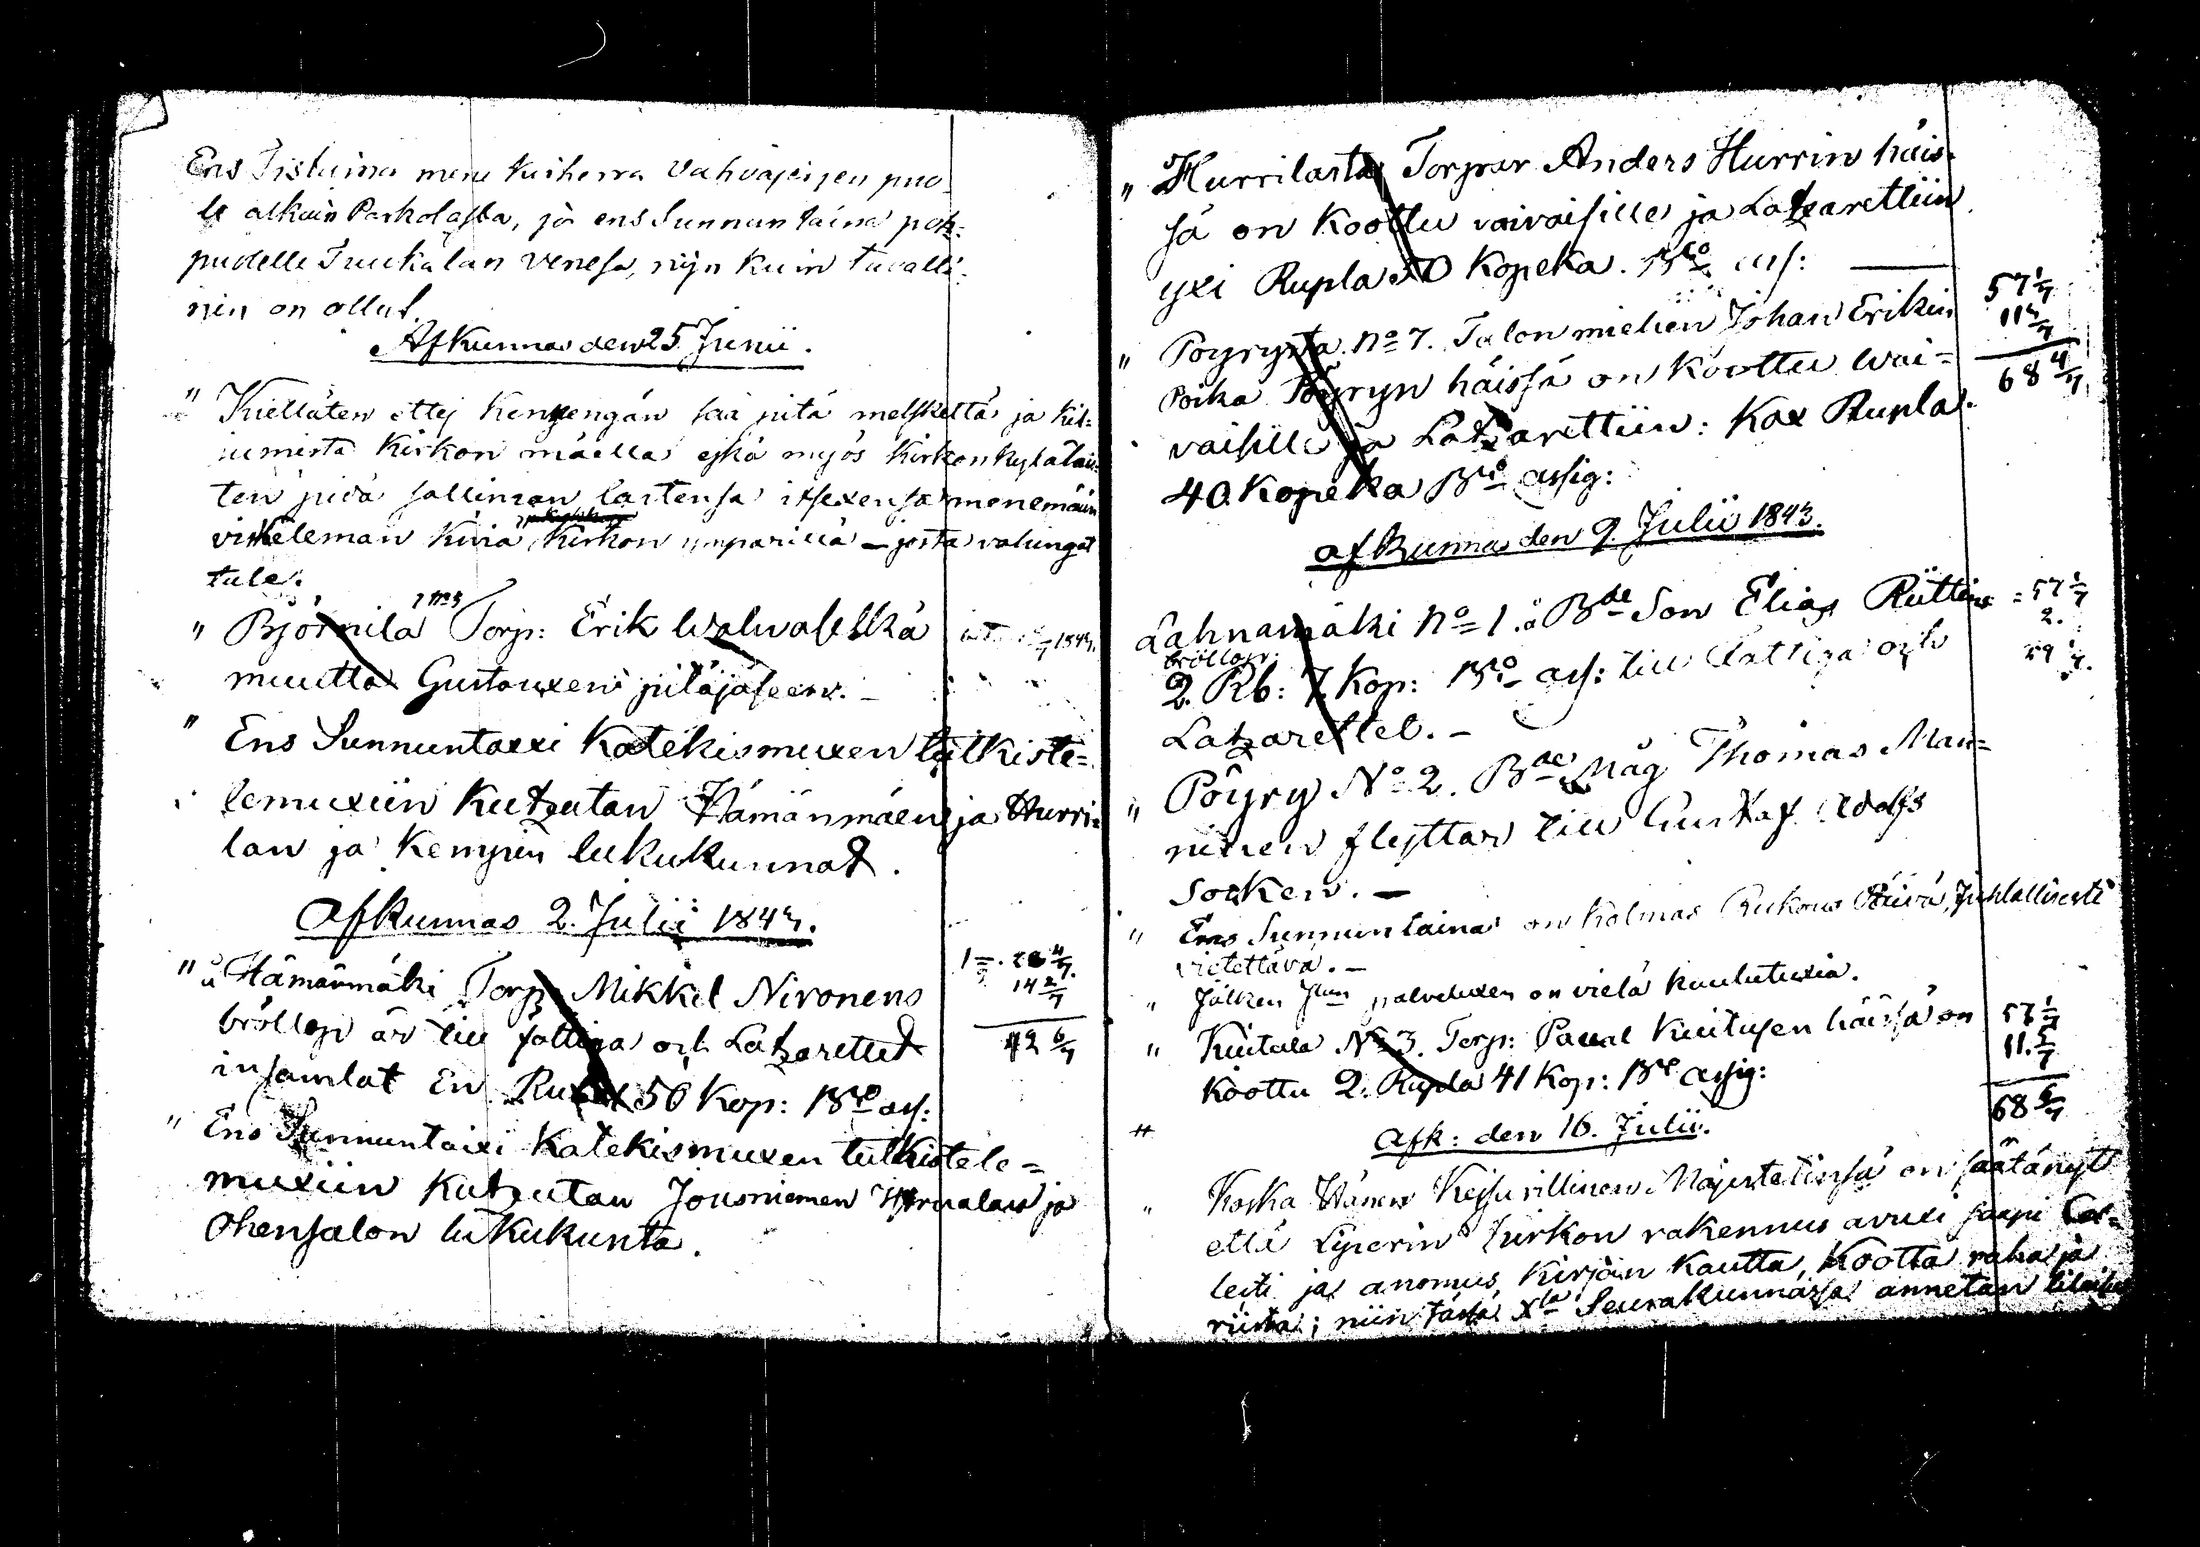 Ens Tistaina mene kirherra Vahvajaisen puo-
le alkain Parkolasta, ja ens Sunnuntaina
pudelle Tuukalan venesa, niin kuin tavalli-
nen on ollut.
Afkunnas den 25 Junii.
" Kielläten ettej kenkengän saa pitä melskettä ja kil-
jumista kirkon mäella eikä myös kirkonkylälais-
ten pidä salliman lastensa itsexensä menemään
viskeleman kiviä kirkon ympärillä – josta valungot
tule.
" Björnilä Torp: Erik Walwaselkä
muutta Gustauxen pitäjäseen. –
" Ens Sunnuntaxi Katekismuxen tutkiste=
lemuxiin kutzutan Hämänmäen ja Hurri=
lan ja Kempin lukukunnat.
Afkunnas 2. Julii 1843.
" å Hämänmäki Torp: Mikkel Nironens
bröllop är till fattiga och Latzarettet
insamlat En Rubel 50 Kop: B<sup>co</sup> ass:
1 = . 28 4/7
14 2/7
42 6/7
" Ens Sunnuntaixi Katekismuxen tutkistele=
muxiin kutzutan Jousniemen Hirvialan ja
Ohensalon lukukunta.
" Hurrilasta, Torpar Anders Hurrin häis-
sä on koottu vaivaisille ja Latzarettiin
yxi Rupla 20 Kopeka. B<sup>co</sup> ass:
" Pöyrystä N:o 7. Talon miehen Johan Erikin
poika Pöyryn häissä on koottu wai=
vaisille ja Latzarettiin: Kax Rupla
40 Kopeka B<sup>co</sup> assig:
57 1/7
11 3/7
68 4/7
afkunnas den 9. Julii 1843.
Lahnamäki N:o 1. å B<sup>de</sup> Son Elias Rüttins
bröllop:
2. Rb: 7. Kop: B<sup>co</sup> ass: till Fattiga och
Latzarettet. –
= 57 1/7
2.
59 1/7.
" Pöyry N:o 2. B<sup>de</sup> Måg Thomas Man=
ninen flyttar till Gustaf Adolfs
Socken. –
" Ens Sunnuntaina on kolmas Rukous Päivä, Juhlallisesti
vietettävä. –
" Jälken Jum palveluxen on vielä kuulutuxia.
" Kuitula N:o 3. Torp: Paual Kuitusen häissä on
koottu 2. Rupla 41 Kop: B<sup>co</sup> assig:
57 1/7
11. 5/7
68 6/7
Afk: den 16. Julii.
" Koska Hänen Keisarillinen Majestetinsä on säätänyt
että Liperin kirkon rakennus avuxi saapi
ja anomus, kirjain kautta, koota rahaja
riista; niin tässä X<sup>la</sup> Seurakunnassa annetan